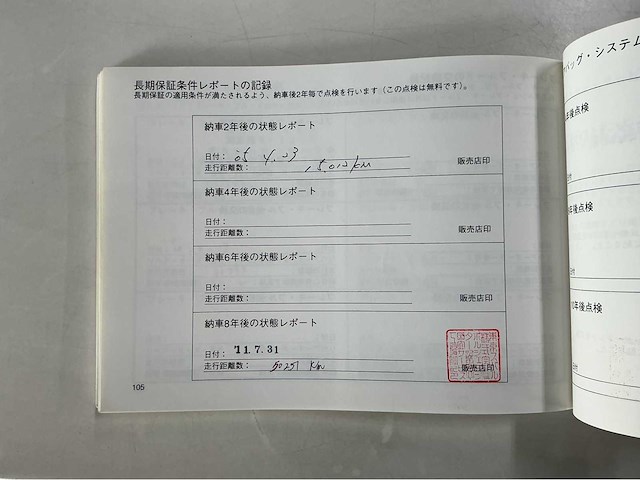 長期保証条件レポートの記録
長期保証の適用条件が満たされるよう、納車後2年毎で点検を行います(この点検は無料です)。
納車2年後の状態レポート
日付: 05 4.03
走行距離数: 15,010 km
販売店印
納車4年後の状態レポート
日付:
走行距離数:
販売店印
納車6年後の状態レポート
日付:
走行距離数:
販売店印
納車8年後の状態レポート
日付: '11.7.31
走行距離数: 50251 Km
販売店印
105
バッグ・システム
後点検
年後点検
年後点検